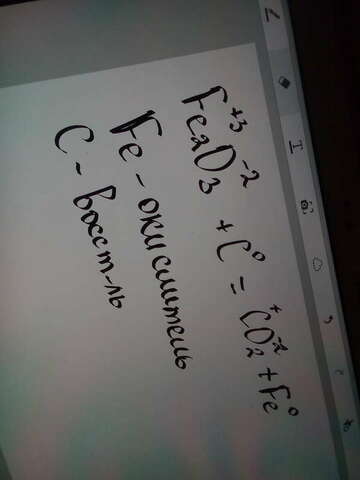 Fe₂⁺³O₃⁻² + C⁰ = C⁺O₂⁻² + Fe⁰
Fe - окислитель
C - восст-ль